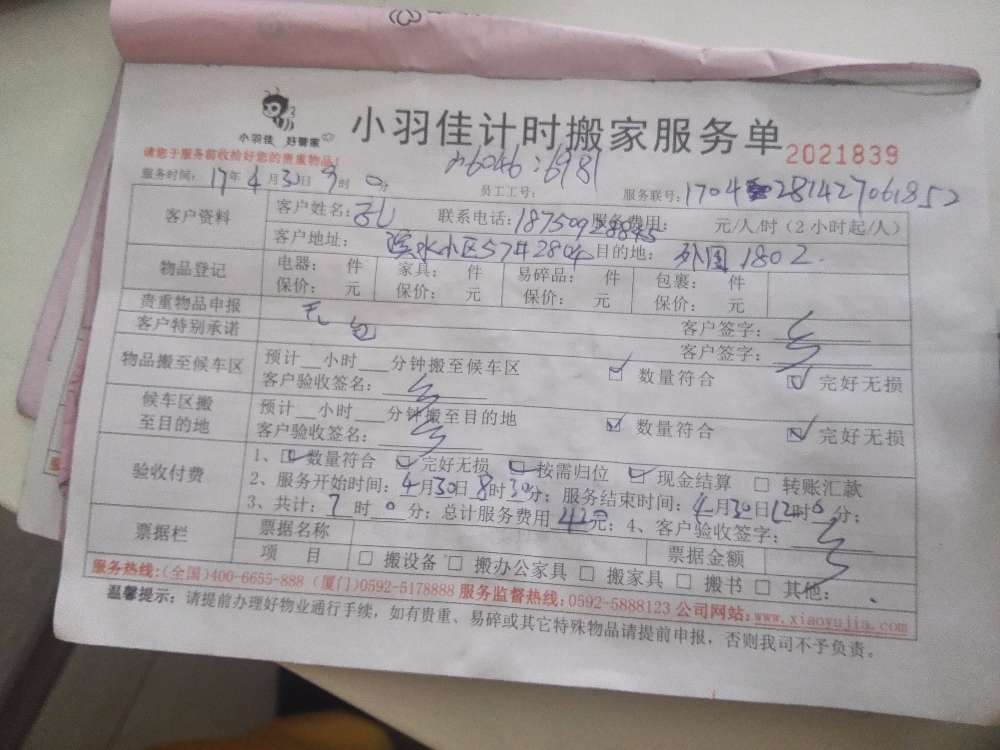 小羽佳 好管家
小羽佳计时搬家服务单 2021839
请您于服务前收拾好您的贵重物品！
服务时间: 17年4月30日9时0分 员工工号: 服务联号:
客户资料 客户姓名: 联系电话: 服务费用: 元/人/时 (2小时起/人)
客户地址: 溪水小区57#2804 目的地: 外图1802.
物品登记 电器: 件 家具: 件 易碎品: 件 包裹: 件
保价: 元 保价: 元 保价: 元 保价: 元
贵重物品申报 无 客户签字:
客户特别承诺 客户签字:
物品搬至候车区 预计__小时___分钟搬至候车区 ☑ 数量符合 ☑ 完好无损
客户验收签名:
候车区搬至目的地 预计__小时___分钟搬至目的地 ☑ 数量符合 ☑ 完好无损
客户验收签名:
验收付费 1、☑ 数量符合 ☑ 完好无损 ☑ 按需归位 ☑ 现金结算 □ 转账汇款
2、服务开始时间: 4月30日8时30分; 服务结束时间: 4月30日12时0分;
3、共计: 7时0分; 总计服务费用 元; 4、客户验收签字:
票据栏 票据名称 票据金额
项 目 □ 搬设备 □ 搬办公家具 □ 搬家具 □ 搬书 □ 其他:
服务热线:(全国)400-6655-888 (厦门)0592-5178888 服务监督热线:0592-5888123 公司网站:www.xiaoyujia.com
温馨提示: 请提前办理好物业通行手续，如有贵重、易碎或其它特殊物品请提前申报，否则我司不予负责。